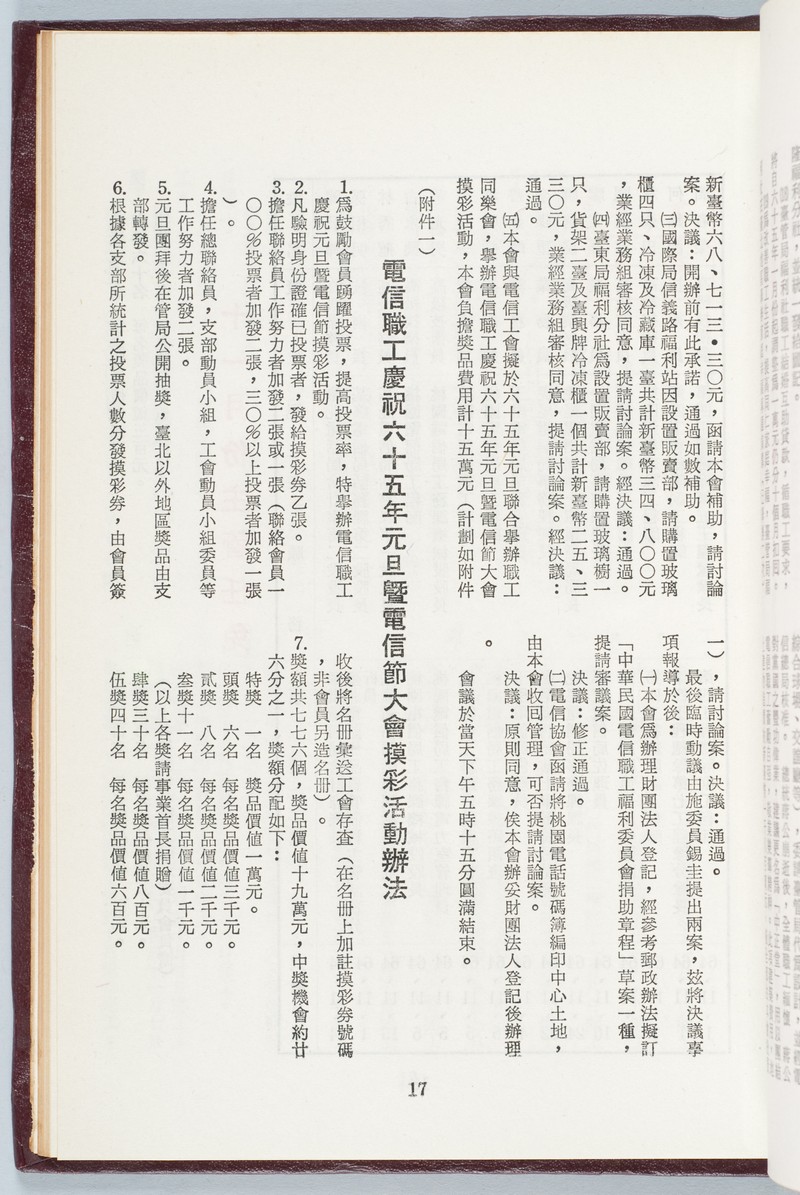 新臺幣六八、七一三•三〇元，函請本會補助，請討論
案。決議：開辦前有此承諾，通過如數補助。
㈢國際局信義路福利站因設置販賣部，請購置玻璃
櫃四只、冷凍及冷藏庫一臺共計新臺幣三四、八〇〇元
，業經業務組審核同意，提請討論案。經決議：通過。
㈣臺東局福利分社爲設置販賣部，請購置玻璃櫥一
只，貨架二臺及臺興牌冷凍櫃一個共計新臺幣二五、三
三〇元，業經業務組審核同意，提請討論案。經決議：
通過。
㈤本會與電信工會擬於六十五年元旦聯合舉辦職工
同樂會，舉辦電信職工慶祝六十五年元旦暨電信節大會
摸彩活動，本會負擔獎品費用計十五萬元（計劃如附件
一），請討論案。決議：通過。
最後臨時動議由施委員錫圭提出兩案，茲將決議事
項報導於後：
㈠本會爲辦理財團法人登記，經參考郵政辦法擬訂
「中華民國電信職工福利委員會捐助章程」草案一種，
提請審議案。
決議：修正通過。
㈡電信協會函請將桃園電話號碼簿編印中心土地，
由本會收囘管理，可否提請討論案。
決議：原則同意，俟本會辦妥財團法人登記後辦理
。
會議於當天下午五時十五分圓滿結束。
（附件一）
電信職工慶祝六十五年元旦暨電信節大會摸彩活動辦法
1.爲鼓勵會員踴躍投票，提高投票率，特舉辦電信職工
慶祝元旦暨電信節摸彩活動。
2.凡驗明身份證確已投票者，發給摸彩券乙張。
3.擔任聯絡員工作努力者加發二張或一張（聯絡會員一
〇〇％投票者加發二張，三〇％以上投票者加發一張
）。
4.擔任總聯絡員，支部動員小組，工會動員小組委員等
工作努力者加發二張。
5.元旦團拜後在管局公開抽獎，臺北以外地區獎品由支
部轉發。
6.根據各支部所統計之投票人數分發摸彩券，由會員簽
收後將名冊彙送工會存查（在名冊上加註摸彩券號碼
，非會員另造名冊）。
7.獎額共七七六個，獎品價值十九萬元，中獎機會約廿
六分之一，獎額分配如下：
特獎　一名　獎品價值一萬元。
頭獎　六名　每名獎品價值三千元。
貳獎　八名　每名獎品價值二千元。
叁獎十一名　每名獎品價值一千元。
（以上各獎請事業首長捐贈）
肆獎三十名　每名獎品價值八百元。
伍獎四十名　每名獎品價值六百元。
17